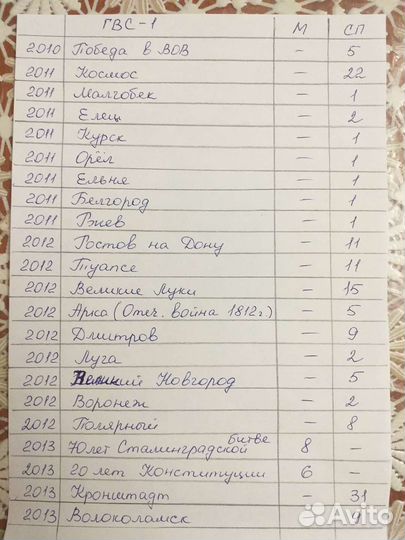 ГВС-1 М СП
2010 Победа в ВОВ - 5
2011 Космос - 22
2011 Малгобек - 1
2011 Елец - 2
2011 Курск - 1
2011 Орёл - 1
2011 Ельня - 1
2011 Белгород - 1
2011 Ржев - 1
2012 Ростов на Дону - 11
2012 Туапсе - 11
2012 Великие Луки - 15
2012 Арка (Отеч. война 1812г.) - 5
2012 Дмитров - 9
2012 Луга - 2
2012 Великий Новгород - 5
2012 Воронеж - 2
2012 Полярный - 8
2013 70 лет Сталинградской битве 8 -
2013 20 лет Конституции 6 -
2013 Кронштадт - 31
2013 Волоколамск - 9
Avito